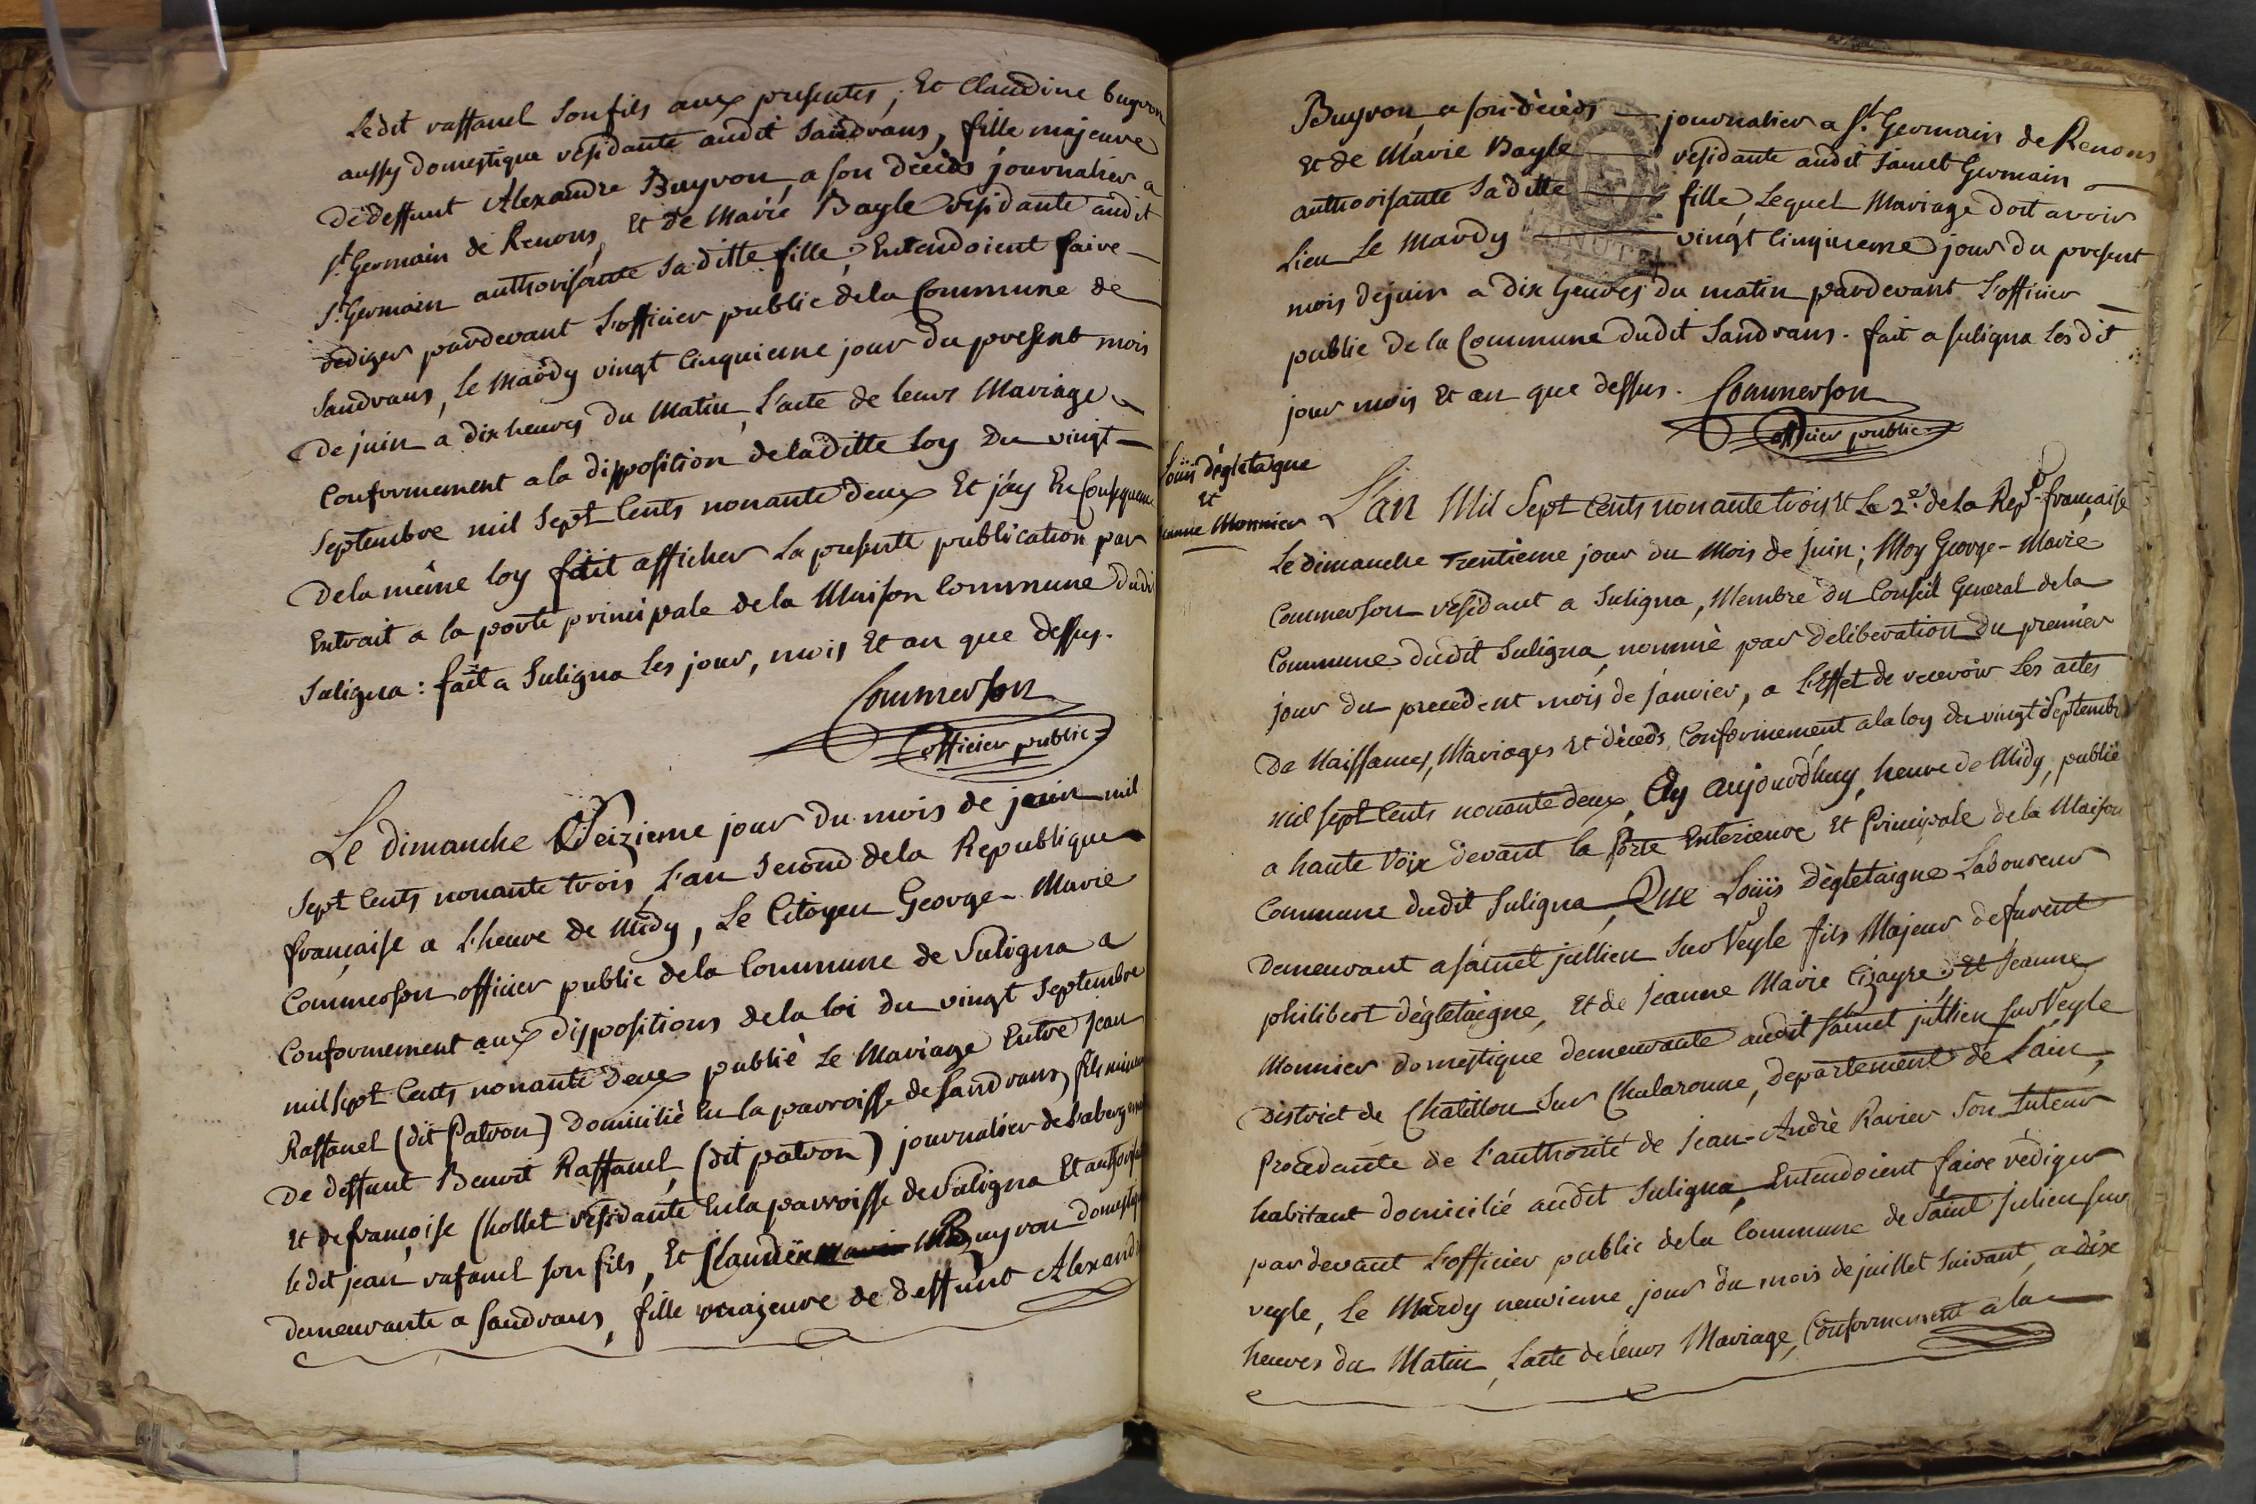 Ledit raffanel son fils aux presentes; Et Claudine buyron
aussy domestique residante audit Sandrans, fille majeure
de deffunt Alexandre Buyron, a son décèds journalier a
St. Germain de Renons, Et de Marie Bayle residante audit
St. Germain authorisante sa ditte fille, Entendoient faire
rediger pardevant L'officier public de la Commune de
Sandrans, le Mardy vingt Cinquieme jour du present mois
de juin a dix heures du Matin, L'acte de leurs Mariage
Conformement a la disposition de la ditte loy du vingt
Septembre mil Sept Cents nonante deux Et j'ay En Consequence
de la même loy fait afficher La presente publication par
Extrait a la porte principale de la Maison Commune dudi
Suligna: fait a Suligna les jour, mois Et an que dessus.
Commerson
officier public
Le dimanche Seizieme jour du mois de juin mil
Sept Cents nonante trois, L'an Second de la Republique
française a L'heure de Midy, Le Citoyen George-Marie
Commerson officier public de la Commune de Suligna a
Conformement aux dispositions de la loi du vingt Septembre
mil sept Cents nonante deux publié Le Mariage Entre Jean
Raffanel (dit Patron) Domicilié En la parroisse de Sandrans, fils mineur
De deffunt Benoit Raffanel, (dit patron) journalier de
Et de françoise Chollet residante En la parroisse de Suligna Et
le dit jean rafanel son fils, Et Claudine Buyron domestique
demeurante a Sandrans, fille majeure de deffunt Alexandre
Buyron, a son décèds journalier a St. Germain de Renons
Et de Marie Bayle residante audit Saint Germain
authorisante Sa ditte fille, Lequel Mariage doit avoir
Lieu Le Mardy vingt Cinquieme jour du present
mois de juin a dix heures du matin pardevant L'officier
public de la Commune dudit Sandrans. fait a Suligna Les dit
jour mois Et an que dessus. Commerson
officier public
Loüis dègletaigne
Et
Jeanne Monnier
L'an Mil Sept Cents nonante trois Et Le 2d. de la Rep. française
Le dimanche Trentieme jour du Mois de juin; Moy George-Marie
Commerson residant a Suligna, Membre du Conseil General de la
Commune dudit Suligna, nommé par deliberation du premier
jour du precedent mois de janvier, a L'Effet de recevoir Les actes
De Naissances, Mariages Et décèds, Conformement a la loy du vingt Septembre
mil sept Cents nonante deux, Ay aujourd'huy, heure de Midy, publié
a haute Voix devant la Porte Exterieure Et Principale de la Maison
Commune dudit Suligna, Que Loüis dègletaigne Laboureur
Demeurant a Saint jullien Sur Veyle fils Majeur de furent
philibert dègletaigne, Et de Jeanne Marie Cizayre, Et Jeanne
Monnier domestique demeurante audit Saint jullien Sur Veyle
District de Chatillon Sur Chalaronne, departement de Lain,
Procedante de L'authorité de Jean-Andrè Ravier Son Tuteur
habitant domicilié audit Suligna, Entendoient faire rédiger
pardevant L'officier public de la Commune de Saint Julien Sur
veyle, Le Mardy neuvieme jour du mois de juillet Suivant, a dix
heures du Matin, L'acte de leurs Mariage, Conformement a la